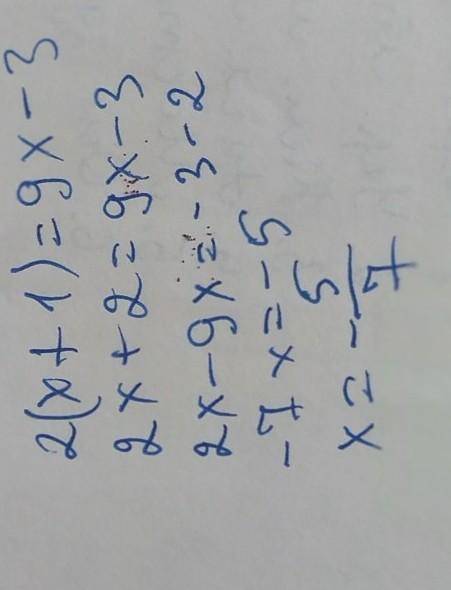 2(x+1)=9x-3
2x+2=9x-3
2x-9x=-3-2
-7x=-5
x=-5/7